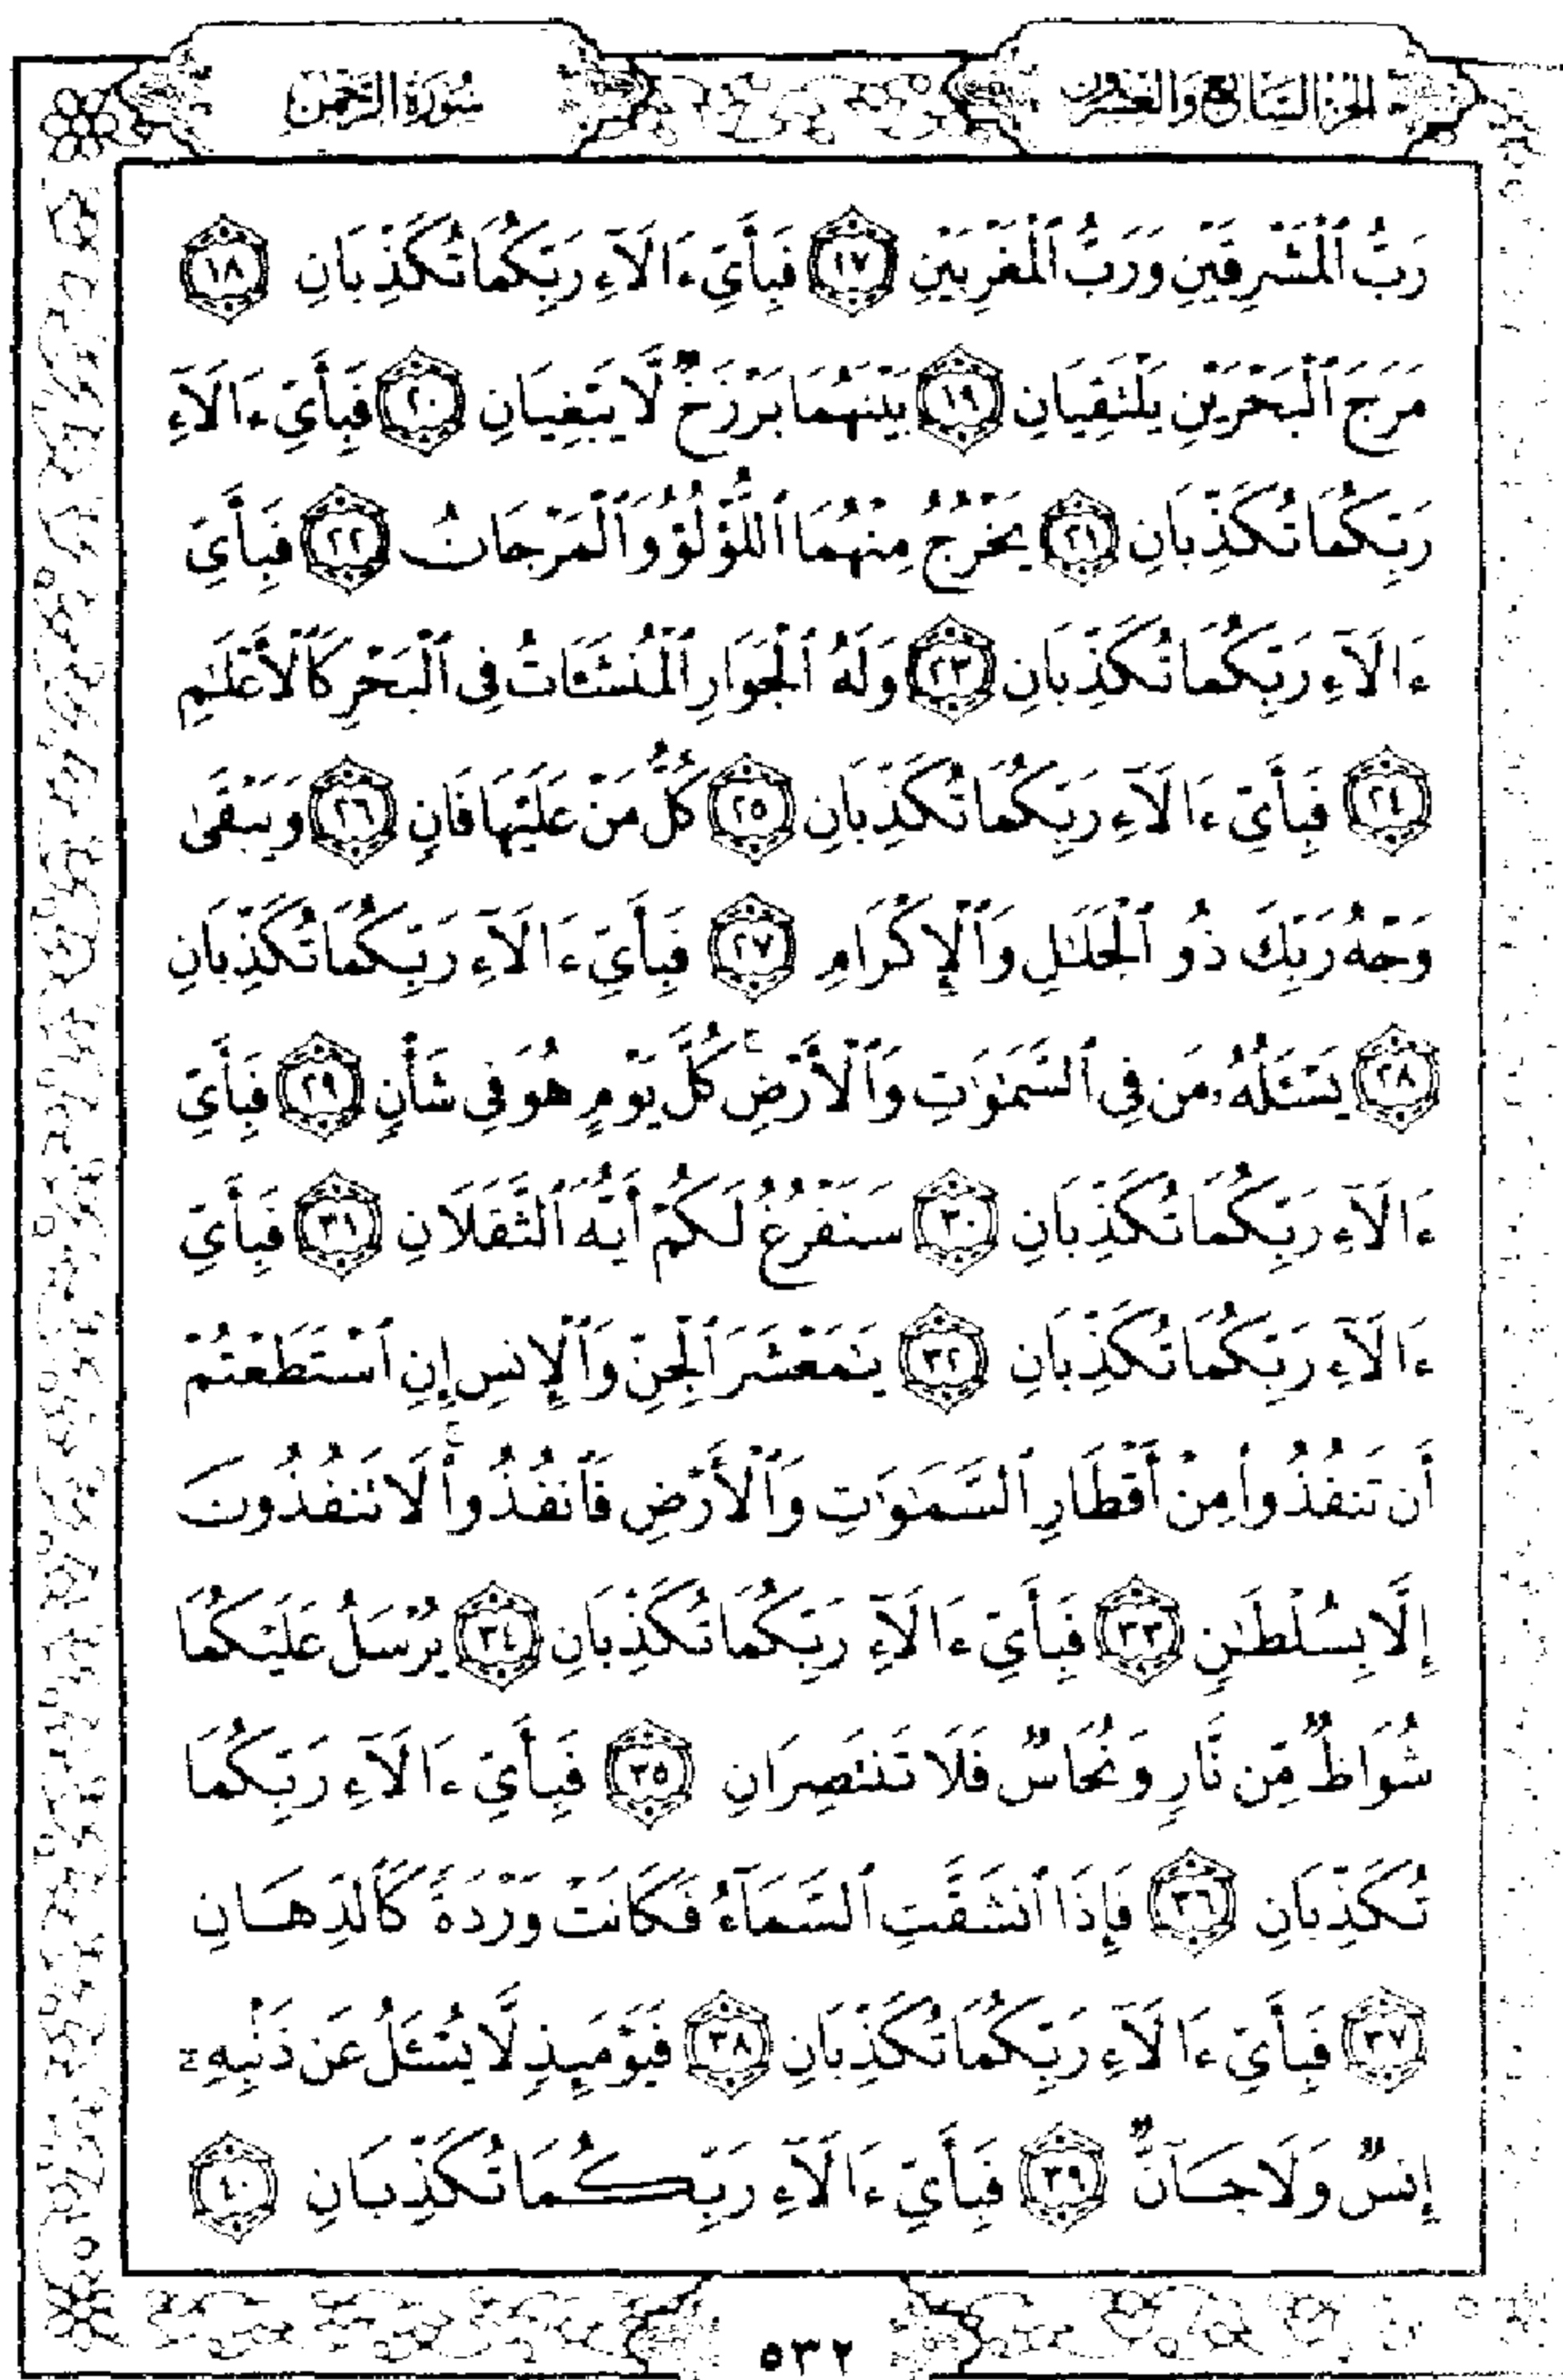 الجزء السابع والعشرون
سُورَةُ الرَّحْمَٰن
رَبُّ ٱلْمَشْرِقَيْنِ وَرَبُّ ٱلْمَغْرِبَيْنِ ١٧ فَبِأَيِّ ءَالَآءِ رَبِّكُمَا تُكَذِّبَانِ ١٨
مَرَجَ ٱلْبَحْرَيْنِ يَلْتَقِيَانِ ١٩ بَيْنَهُمَا بَرْزَخٌ لَّا يَبْغِيَانِ ٢٠ فَبِأَيِّ ءَالَآءِ
رَبِّكُمَا تُكَذِّبَانِ ٢١ يَخْرُجُ مِنْهُمَا ٱللُّؤْلُؤُ وَٱلْمَرْجَانُ ٢٢ فَبِأَيِّ
ءَالَآءِ رَبِّكُمَا تُكَذِّبَانِ ٢٣ وَلَهُ ٱلْجَوَارِ ٱلْمُنشَـَٔاتُ فِى ٱلْبَحْرِ كَٱلْأَعْلَٰمِ
٢٤ فَبِأَيِّ ءَالَآءِ رَبِّكُمَا تُكَذِّبَانِ ٢٥ كُلُّ مَنْ عَلَيْهَا فَانٍ ٢٦ وَيَبْقَىٰ
وَجْهُ رَبِّكَ ذُو ٱلْجَلَٰلِ وَٱلْإِكْرَامِ ٢٧ فَبِأَيِّ ءَالَآءِ رَبِّكُمَا تُكَذِّبَانِ
٢٨ يَسْـَٔلُهُۥ مَن فِى ٱلسَّمَٰوَٰتِ وَٱلْأَرْضِ ۚ كُلَّ يَوْمٍ هُوَ فِى شَأْنٍ ٢٩ فَبِأَيِّ
ءَالَآءِ رَبِّكُمَا تُكَذِّبَانِ ٣٠ سَنَفْرُغُ لَكُمْ أَيُّهَ ٱلثَّقَلَانِ ٣١ فَبِأَيِّ
ءَالَآءِ رَبِّكُمَا تُكَذِّبَانِ ٣٢ يَٰمَعْشَرَ ٱلْجِنِّ وَٱلْإِنسِ إِنِ ٱسْتَطَعْتُمْ
أَن تَنفُذُوا۟ مِنْ أَقْطَارِ ٱلسَّمَٰوَٰتِ وَٱلْأَرْضِ فَٱنفُذُوا۟ ۚ لَا تَنفُذُونَ
إِلَّا بِسُلْطَٰنٍ ٣٣ فَبِأَيِّ ءَالَآءِ رَبِّكُمَا تُكَذِّبَانِ ٣٤ يُرْسَلُ عَلَيْكُمَا
شُوَاظٌ مِّن نَّارٍ وَنُحَاسٌ فَلَا تَنتَصِرَانِ ٣٥ فَبِأَيِّ ءَالَآءِ رَبِّكُمَا
تُكَذِّبَانِ ٣٦ فَإِذَا ٱنشَقَّتِ ٱلسَّمَآءُ فَكَانَتْ وَرْدَةً كَٱلدِّهَانِ
٣٧ فَبِأَيِّ ءَالَآءِ رَبِّكُمَا تُكَذِّبَانِ ٣٨ فَيَوْمَئِذٍ لَّا يُسْـَٔلُ عَن ذَنۢبِهِۦٓ
إِنسٌ وَلَا جَآنٌّ ٣٩ فَبِأَيِّ ءَالَآءِ رَبِّكُمَا تُكَذِّبَانِ ٤٠
٥٣٢